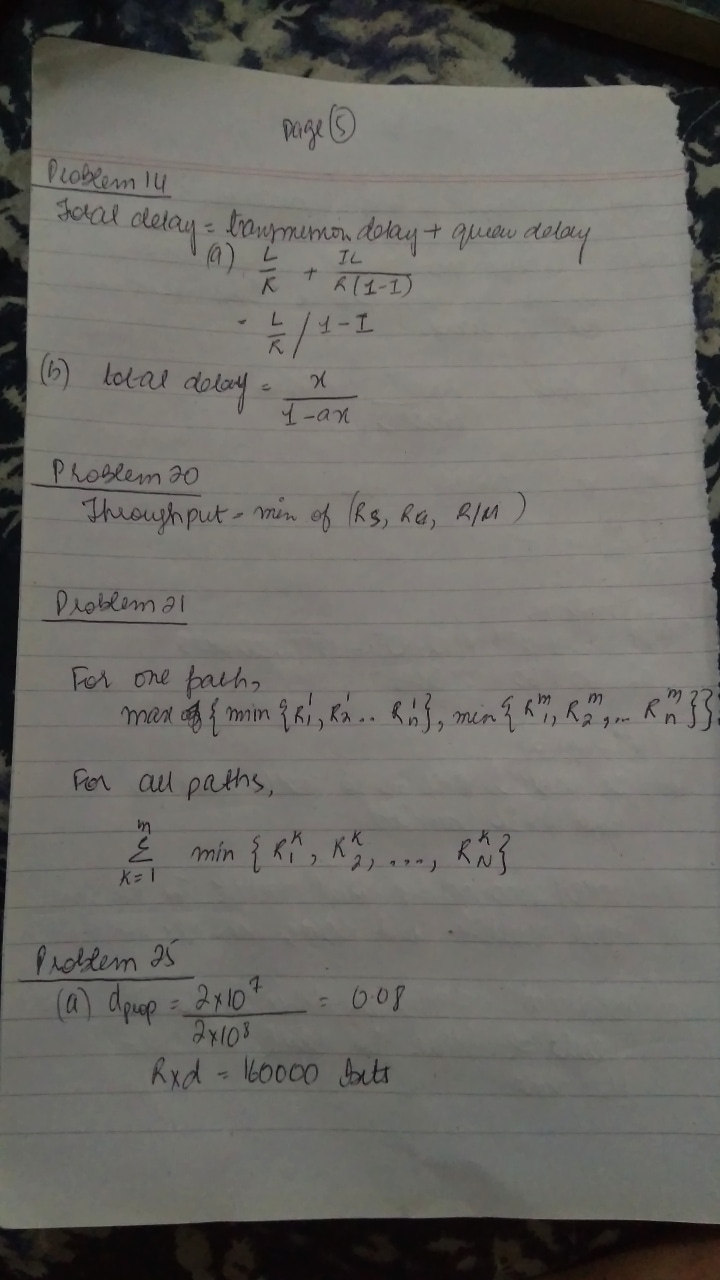 Page (5)
Problem 14
Total delay = transmission delay + queue delay
(a) L/R + IL/R(1-I)
= L/R / 1-I
(b) total delay = x/1-ax
Problem 20
Throughput = min of (Rs, Rc, R/M)
Problem 21
For one path,
max {min {R₁¹, R₂¹.. Rₙ¹}, min{R₁ᵐ, R₂ᵐ,... Rₙᵐ}}
For all paths,
m
Σ min {R₁ᴷ, R₂ᴷ, ...., R_Nᴷ}
K=1
Problem 25
(a) dprop = 2×10⁷/2×10⁸ = 0.08
R×d = 160000 bits